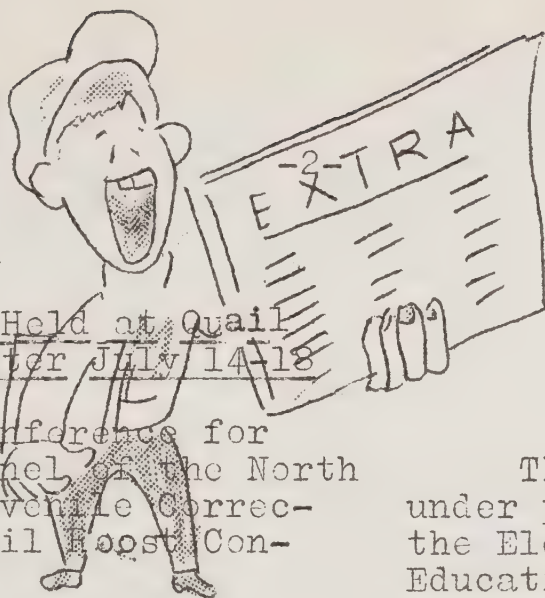 -2-
EXTRA
Held at Quail
ter July 14-18
nference for
nel of the North
venile Correc-
il Roost Con-
Th
under p
the Ele
Educati